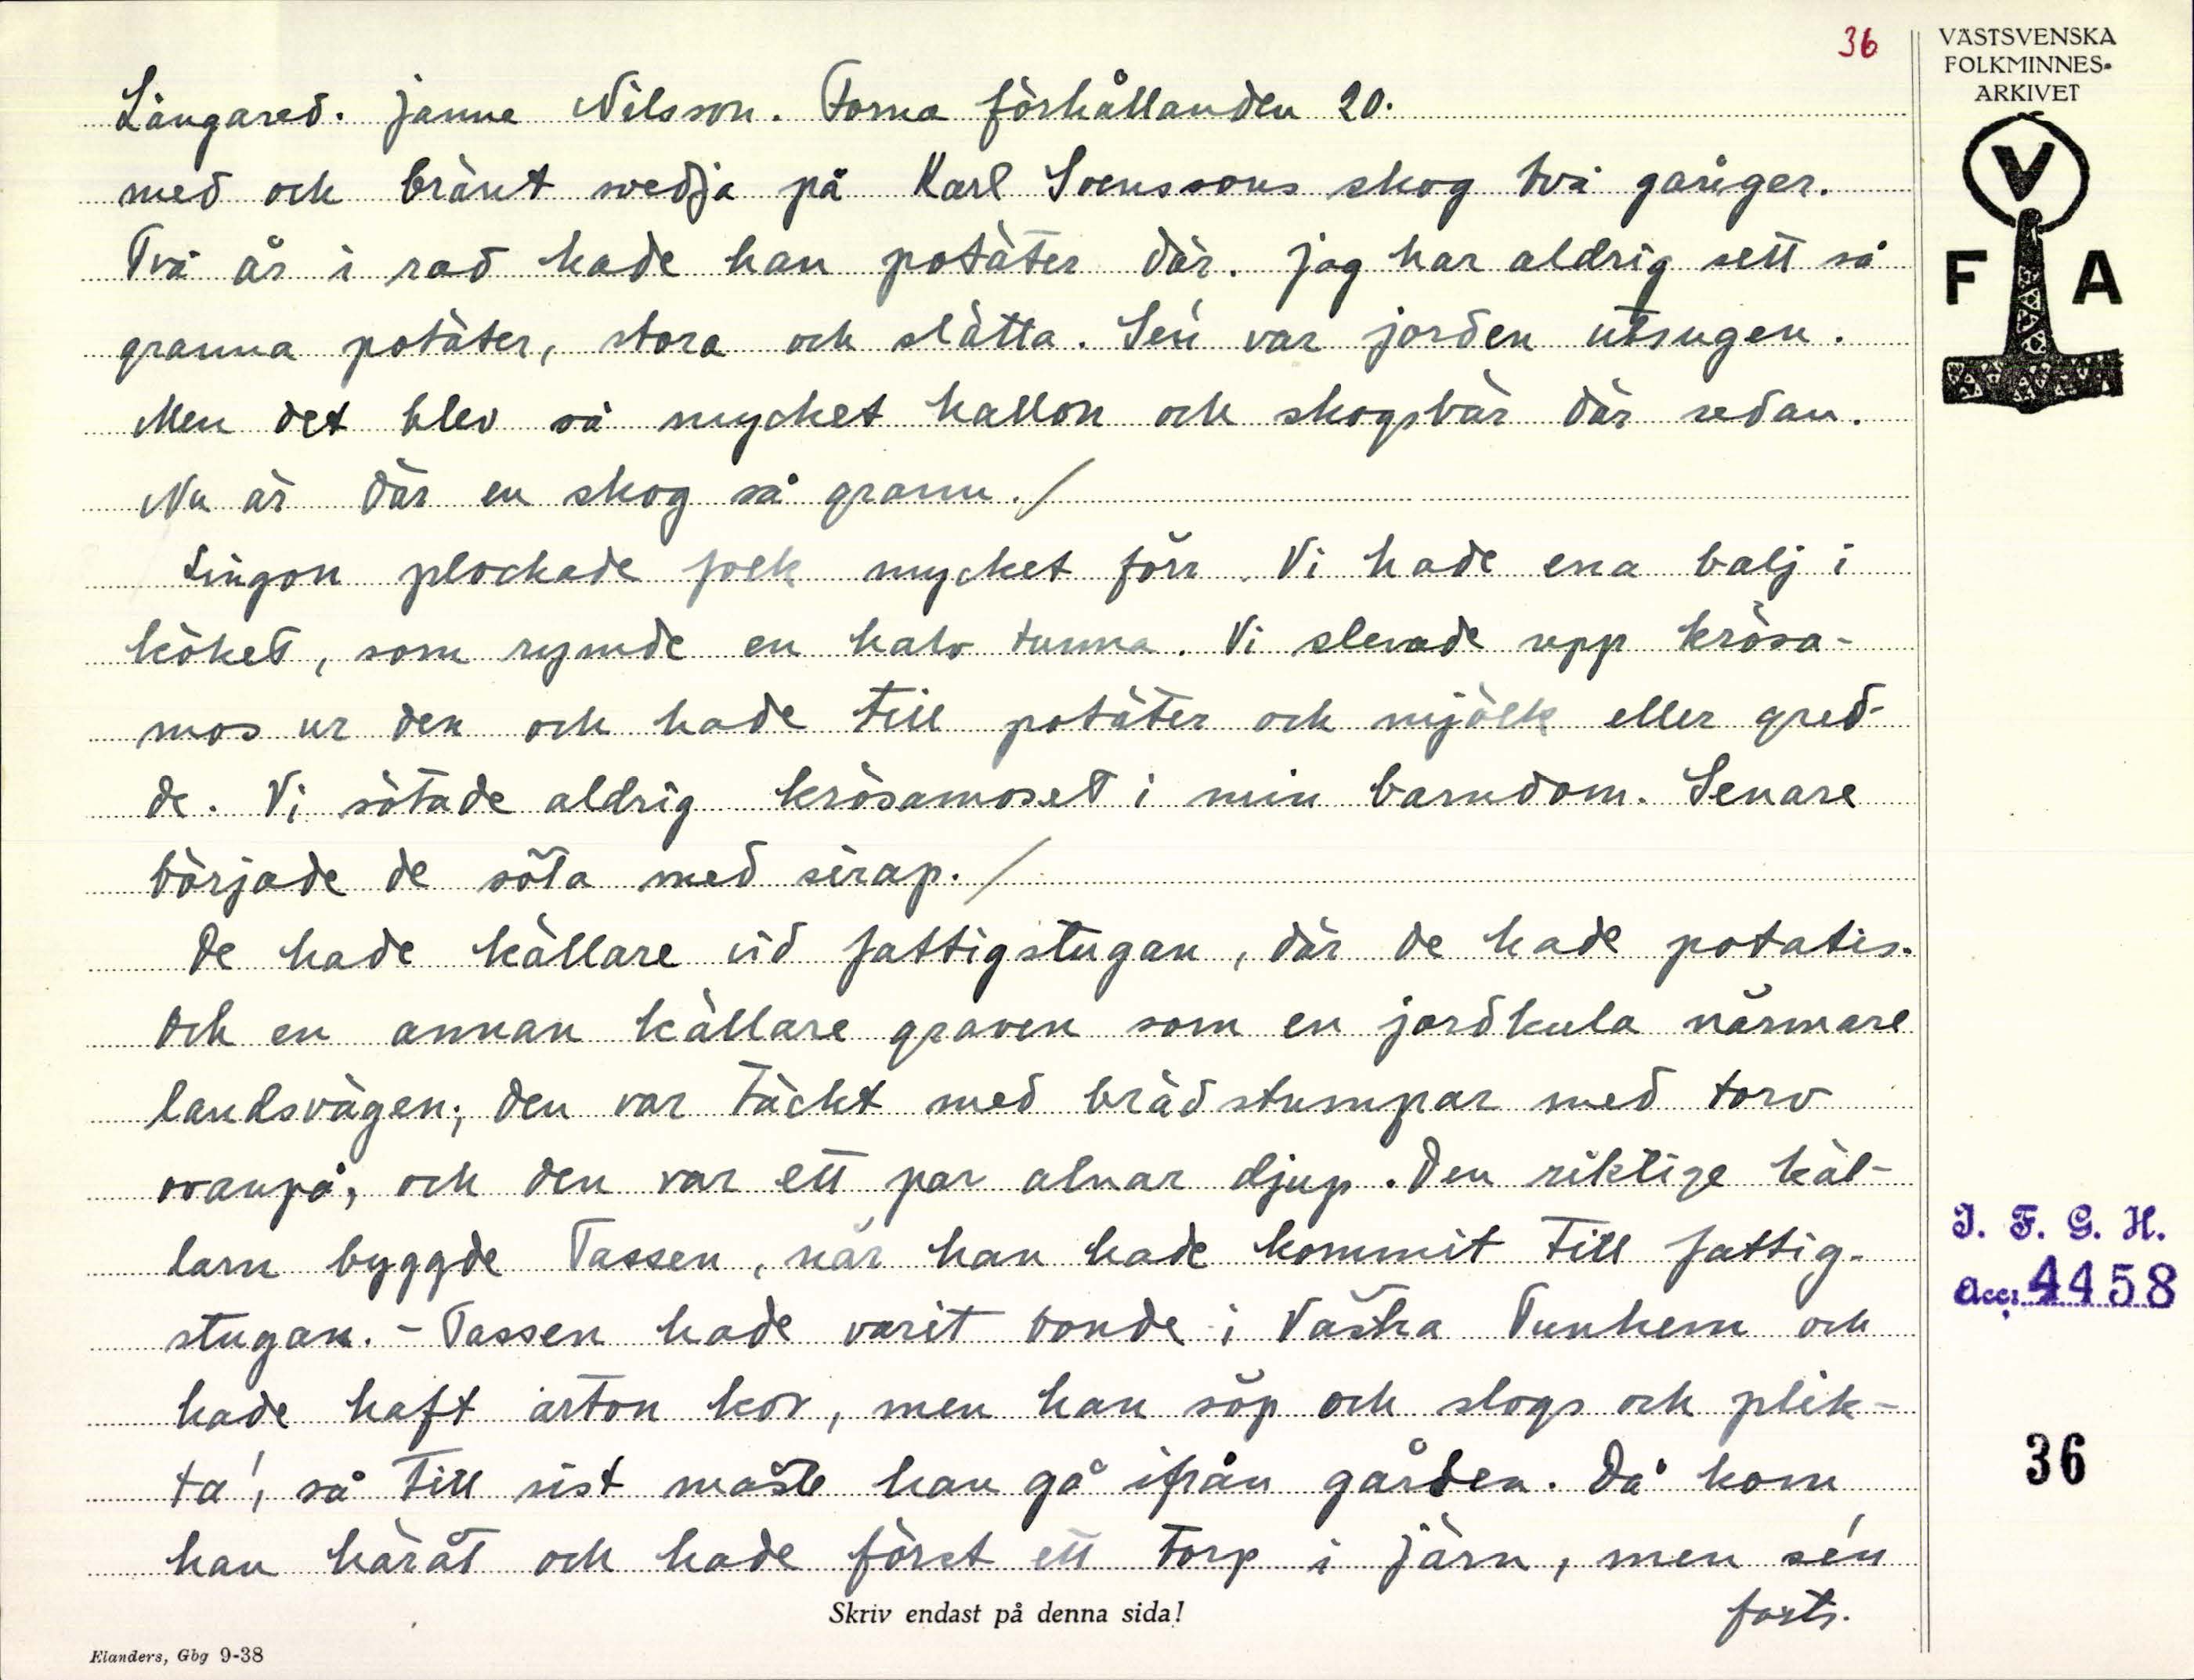 36
VÄSTSVENSKA
FOLKMINNES-
ARKIVET
V
F A
Långared. Janne Nilsson. Forna förhållanden 20.
med och bränt svedja på Karl Svenssons skog två gånger.
Två år i rad hade han potäter där. Jag har aldrig sett så
granna potäter, stora och slätta. Sen' var jorden utsugen.
Men det blev så mycket hallon och skogsbär där sedan.
Nu är där en skog så grann./
Lingon plockade folk mycket förr. Vi hade ena balj i
köket, som rymde en halv tunna. Vi slevade upp krösa-
mos ur den och hade till potäter och mjölk eller gräd-
de. Vi sötade aldrig krösamoset i min barndom. Senare
började de söta med sirap./
De hade källare vid fattigstugan, där de hade potatis.
Och en annan källare graven som en jordkula närmare
landsvägen; den var täckt med brädstumpar med torv
ovanpå, och den var ett par alnar djup. Den riktige käl-
larn byggde Tassen, när han hade kommit till fattig-
stugan. - Tassen hade varit bonde i Västra Tunhem och
hade haft arton kor, men han söp och slogs och plik-
ta', så till sist måste han gå ifrån gården. Då kom
han häråt och hade först ett torp i Järn, men sén
forts.
Skriv endast på denna sida!
Elanders, Gbg 9-38
I. F. G. H.
Acc. 4458
36